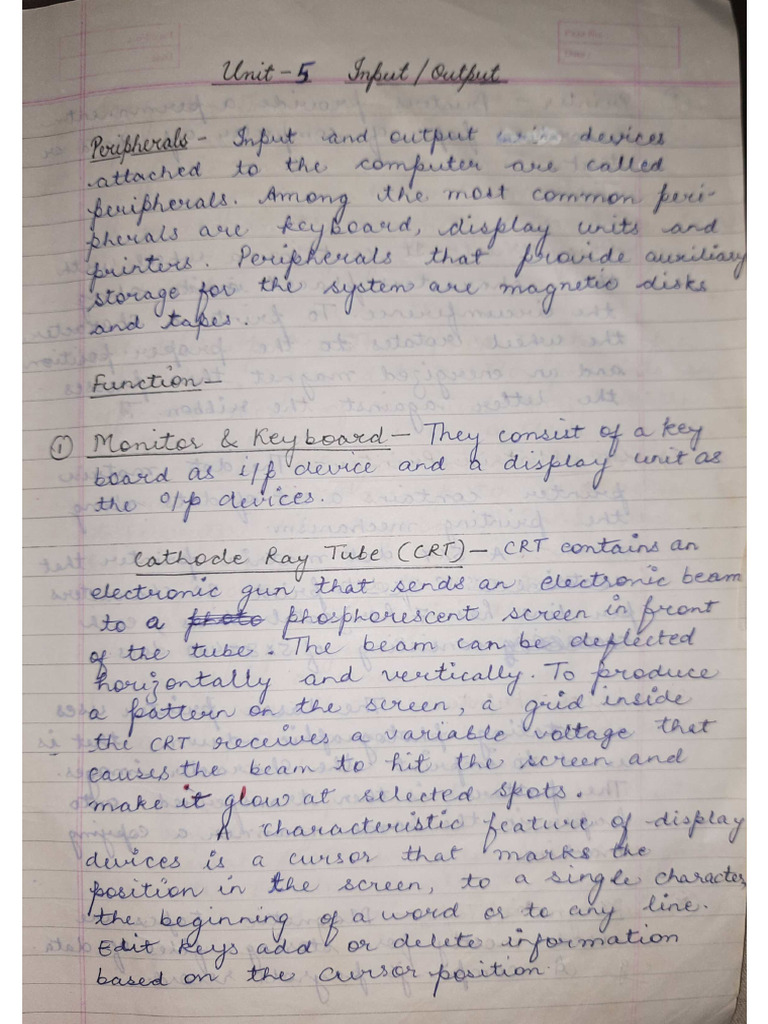 Unit-5 Input/Output
Peripherals - Input and output devices
attached to the computer are called
peripherals. Among the most common peri-
pherals are keyboard, display units and
printers. Peripherals that provide auxiliary
storage for the system are magnetic disks
and tapes.
Function -
① Monitor & Keyboard - They consist of a key
board as i/p device and a display unit as
the o/p devices.
Cathode Ray Tube (CRT) - CRT contains an
electronic gun that sends an electronic beam
to a photo phosphorescent screen in front
of the tube. The beam can be deflected
horizontally and vertically. To produce
a pattern on the screen, a grid inside
the CRT receives a variable voltage that
causes the beam to hit the screen and
make it glow at selected spots.
A characteristic feature of display
devices is a cursor that marks the
position in the screen, to a single character,
the beginning of a word or to any line.
Edit keys add or delete information
based on the cursor position.